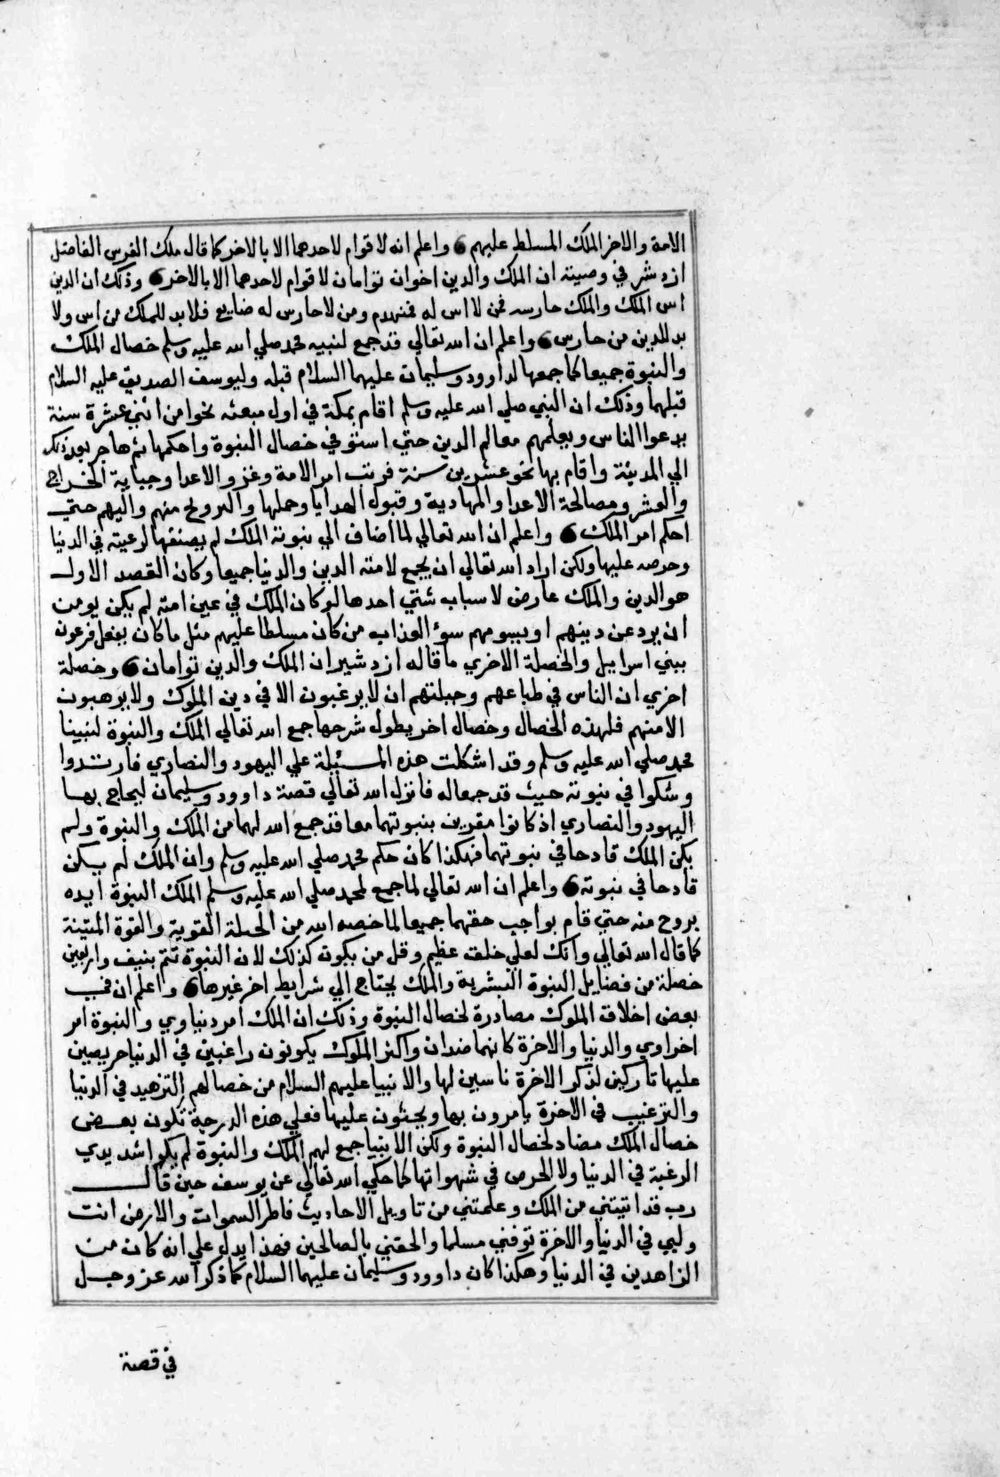 الامة والاخر الملك المسلط عليهم 6 واعلم انه لا قوام لاحدهما الا بالاخر كما قال ملك الفرس الفاضل
ازدشر في وصيته ان الملك والدين اخوان توامان لا قوام لاحدهما الا بالاخر 6 وذلك ان الدين
اس الملك والملك حارسه فمن لا اس له فمنهدم ومن لا حارس له ضايع فلا بد للملك من اس ولا
بد للدين من حارس 6 واعلم ان الله تعالي قد جمع لنبيه محمد صلي الله عليه وسلم خصال الملك
والنبوة جميعا كما جمعها لداوود وسليمان عليهما السلام قبله وليوسف الصديق عليه السلام
قبلهما وذلك ان النبي صلي الله عليه وسلم اقام بمكة في اول مبعثه نحوا من اثني عشرة سنة
يدعوا الناس ويعلمهم معالم الدين حتي استوفي خصال النبوة واحكمها ثم هاجر بعد ذلك
الي المدينة واقام بها نحو عشر بن سنة فرتب امر الامة وغزو الاعدا وجباية الخراج
والعشر ومصالحة الاعدا والمهادية وقبول الهدايا وحملها والترويج منهم واليهم حتي
احكم امر الملك 6 واعلم ان الله تعالي لما اضاف الي نبوته الملك لم يضفها لرغبته في الدنيا
وحرصه عليها ولكن اراد الله تعالي ان يجمع لامته الدين والدنيا جميعا وكان القصد الاول
هو الدين والملك عارض لاسباب شتي احدها لو كان الملك في غير امته لم يكن يومن
ان يرد عن دينهم او يسومهم سوء العذاب من كان مسلطا عليهم مثل ما كان يفعل فرعون
ببني اسراييل والخصلة الاخري ما قاله ازدشير ان الملك والدين توامان 6 وخصلة
اخري ان الناس في طباعهم وجبلتهم ان لا يرغبون الا في دين الملوك ولا يرهبون
الا منهم فلهذه الخصال وخصال اخر يطول شرحها جمع الله تعالي الملك والنبوة لنبينا
محمد صلي الله عليه وسلم وقد اشكلت هذه المسئلة علي اليهود والنصاري فارتدوا
وشكوا في نبوته حيث قد جمعا له فانزل الله تعالي قصة داوود وسليمان ليحاج بها
اليهود والنصاري اذ كانوا مقرين بنبوتهما معا فقد جمع الله لهما من الملك والنبوة ولم
يكن الملك قادحا في نبوتهما فهكذا كان حكم محمد صلي الله عليه وسلم وان الملك لم يكن
قادحا في نبوته 6 واعلم ان الله تعالي لما جمع لمحمد صلي الله عليه وسلم الملك النبوة ايده
بروح منه حتي قام بواجب حقهما جميعا لما خصه الله من الجبلة القوية والقوة المتينة
كما قال الله تعالي وانك لعلي خلق عظيم وقل من يكون كذلك لان النبوة تتم بنيف واربعين
خصلة من فضايل النبوة البشرية والملك يحتاج الي شرايط اخر غيرها 6 واعلم ان في
بعض اخلاق الملوك مصادرة لخصال النبوة وذلك ان الملك امر دنياوي والنبوة امر
اخراوي والدنيا والاخرة كانهما ضدان واكثر الملوك يكونون راغبين في الدنيا حريصين
عليها تاركين لذكر الاخرة ناسين لها والانبيا عليهم السلام من خصالهم التزهيد في الدنيا
والترغيب في الاخرة يامرون بها ويحثون عليها فعلي هذه الدرجة تكون بعض
خصال الملك مضاد لخصال النبوة ولكن الانبيا جمع لهم الملك والنبوة لم يكوا شديدي
الرغبة في الدنيا ولا الحرص في شهواتها كما حكي الله تعالي عن يوسف حين قال
رب قد اتيتني من الملك وعلمتني من تاويل الاحاديث فاطر السموات والارض انت
وليي في الدنيا والاخرة توفني مسلما والحقني بالصالحين فهذا يدل علي انه كان من
الزاهدين في الدنيا وهكذا كان داوود وسليمان عليهما السلام كما ذكر الله عز وجل
في قصة